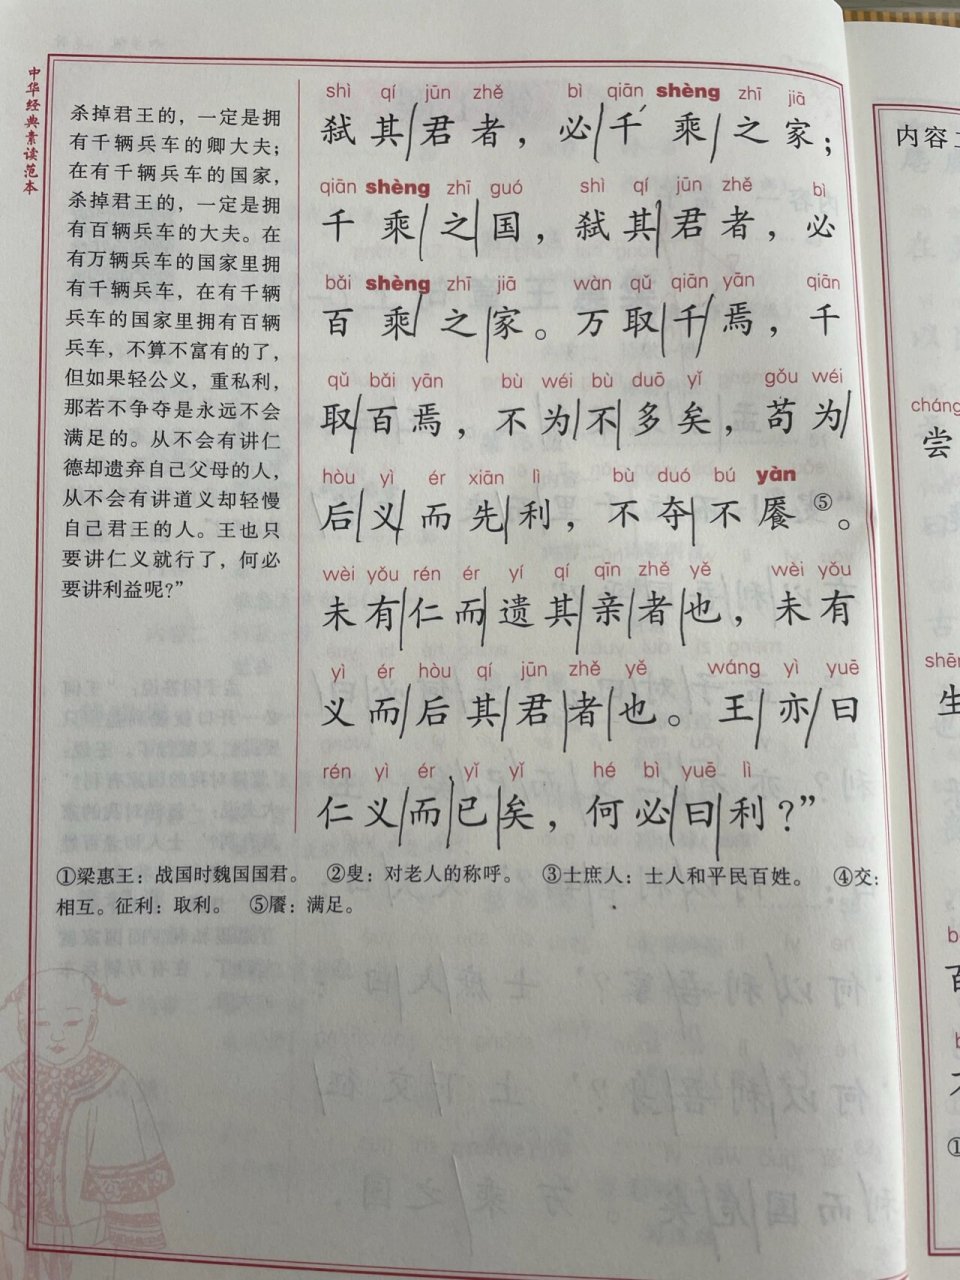 中华经典素读范本
杀掉君王的，一定是拥
有千辆兵车的卿大夫；
在有千辆兵车的国家，
杀掉君王的，一定是拥
有百辆兵车的大夫。在
有万辆兵车的国家里拥
有千辆兵车，在有千辆
兵车的国家里拥有百辆
兵车，不算不富有的了，
但如果轻公义，重私利，
那若不争夺是永远不会
满足的。从不会有讲仁
德却遗弃自己父母的人，
从不会有讲道义却轻慢
自己君王的人。王也只
要讲仁义就行了，何必
要讲利益呢？”
shì qí jūn zhě bì qiān shèng zhī jiā
弑其君者，必千乘之家；
qiān shèng zhī guó shì qí jūn zhě bì
千乘之国，弑其君者，必
bǎi shèng zhī jiā wàn qǔ qiān yān qiān
百乘之家。万取千焉，千
qǔ bǎi yān bù wéi bù duō yǐ gǒu wéi
取百焉，不为不多矣，苟为
hòu yì ér xiān lì bù duó bú yàn
后义而先利，不夺不餍⑤。
wèi yǒu rén ér yí qí qīn zhě yě wèi yǒu
未有仁而遗其亲者也，未有
yì ér hòu qí jūn zhě yě wáng yì yuē
义而后其君者也。王亦曰
rén yì ér yǐ yǐ hé bì yuē lì
仁义而已矣，何必曰利？”
①梁惠王：战国时魏国国君。 ②叟：对老人的称呼。 ③士庶人：士人和平民百姓。 ④交：
相互。征利：取利。 ⑤餍：满足。
内容
cháng
尝
shēng
生